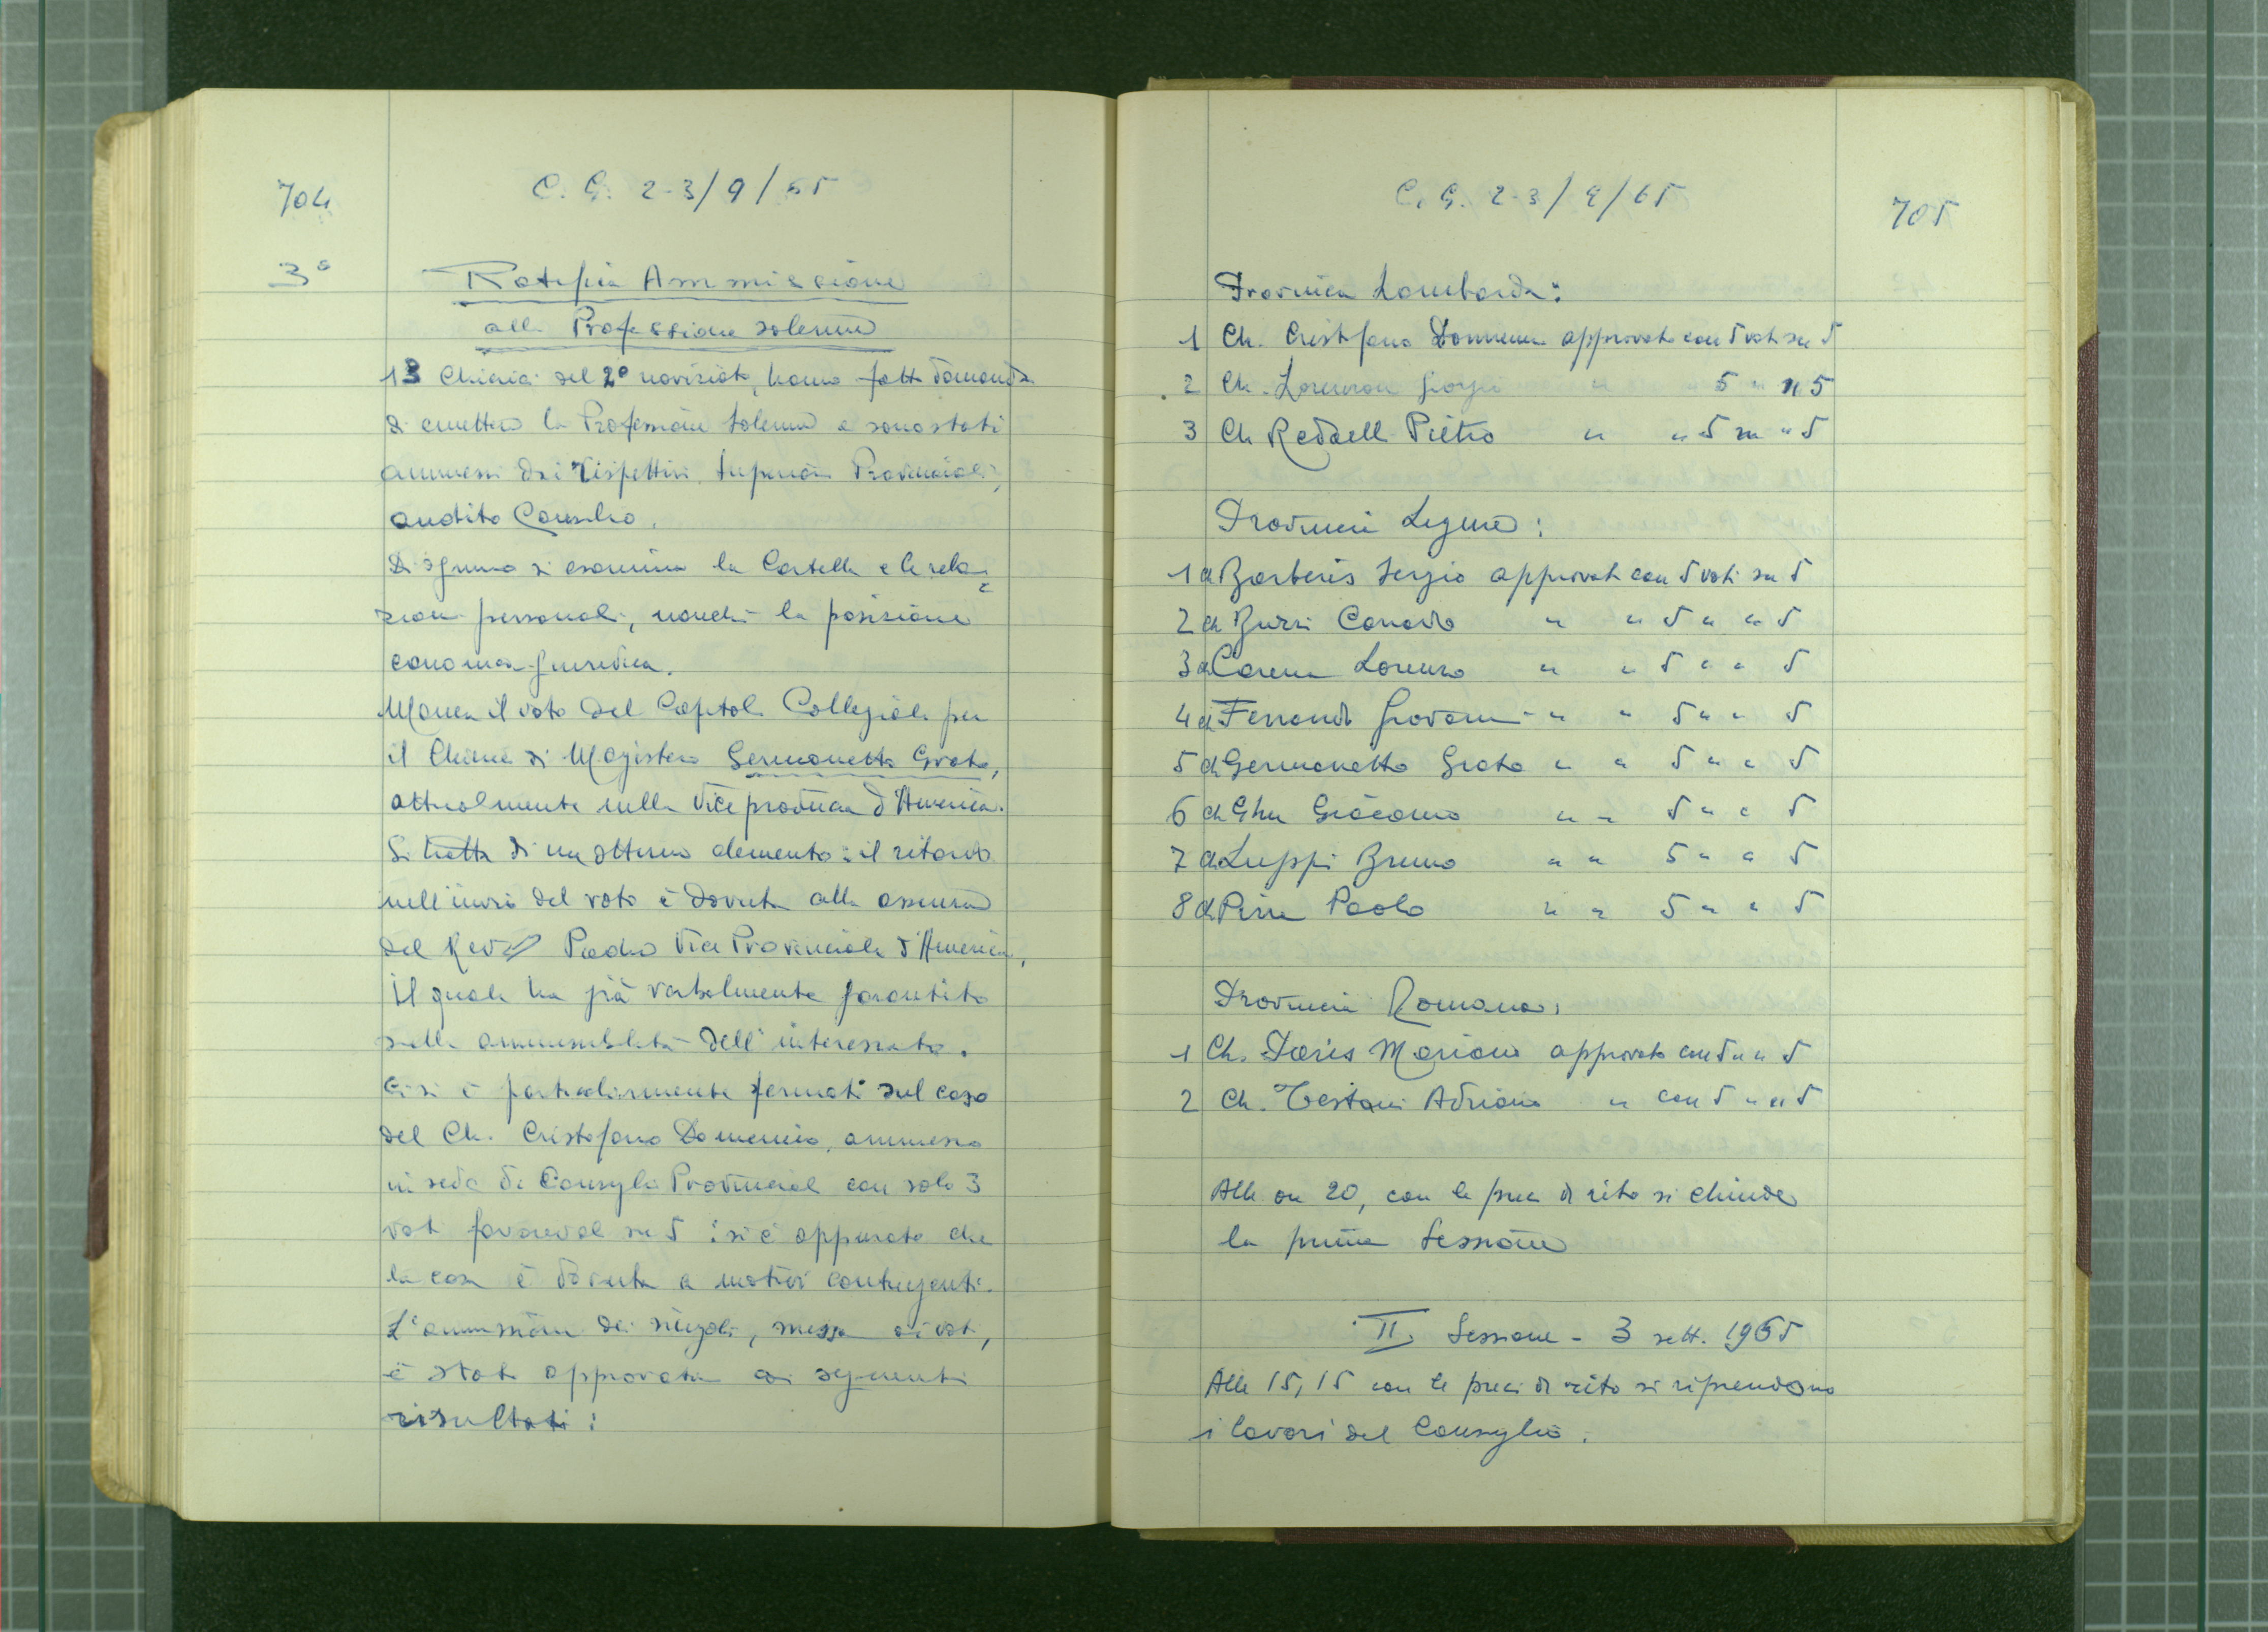 704
C. G. 2-3/9/65
3°
Ratifica Ammissione
alla Professione solenne
13 Chierici del 2° noviziato, hanno fatto domanda
di emettere la Professione solenne e sono stati
ammessi dai rispettivi Superiori Provinciali,
audito Consilio.
Di ognuno si esamina la Cartella e le rela=
zioni personali, nonché la posizione
canonica-giuridica.
Manca il voto del Capitolo Collegiale per
il Chierico di Magistero Germanetto Grato,
attualmente nella Viceprovincia d'America.
Si tratta di un ottimo elemento: il ritardo
nell'invio del voto è dovuto alla assenza
del Rev. Padre Vice Provinciale d'America,
il quale ha già verbalmente garantito
sulla ammissibilità dell'interessato.
Ci si è particolarmente fermati sul caso
del Ch. Cristofano Domenico, ammesso
in sede di Consiglio Provinciale con solo 3
voti favorevoli su 5: si è appurato che
la cosa è dovuta a motivi contingenti.
L'ammissione dei singoli, messa ai voti,
è stata approvata coi seguenti
risultati:
C. G. 2-3/9/65
705
Provincia Lombarda:
1 Ch. Cristofano Domenico approvato con 5 voti su 5
2 Ch. Giorgio " " 5 " " 5
3 Ch Redaelli Pietro " " 5 su " 5
Provincia Ligure:
1 ch Barberis Sergio approvato con 5 voti su 5
2 ch Burzi Corrado " " 5 " " 5
3 ch Carena Lorenzo " " 5 " " 5
4 ch Ferrando Giovanni " " 5 " " 5
5 ch Germanetto Grato " " 5 " " 5
6 ch Ghu Giacomo " " 5 " " 5
7 ch Luppi Bruno " " 5 " " 5
8 ch Paolo " " 5 " " 5
Provincia Romana:
1 Ch. Mariano approvato con 5 " " 5
2 Ch. Testani Adriano " con 5 " " 5
Alle ore 20, con le preci di rito si chiude
la prima Sessione
II Sessione - 3 sett. 1965
Alle 15,15 con le preci di rito si riprendono
i lavori del Consiglio.